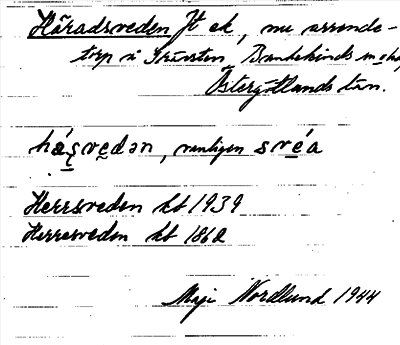 Häradsveden ft ek, nu arrende-
torp i Grävsten Bankekinds m a hd
Östergötlands län.
hä́ṣvedən, vanligen svéa
Herrsveden kt 1939
Herresveden kt 1862
Maja Nordlund 1944